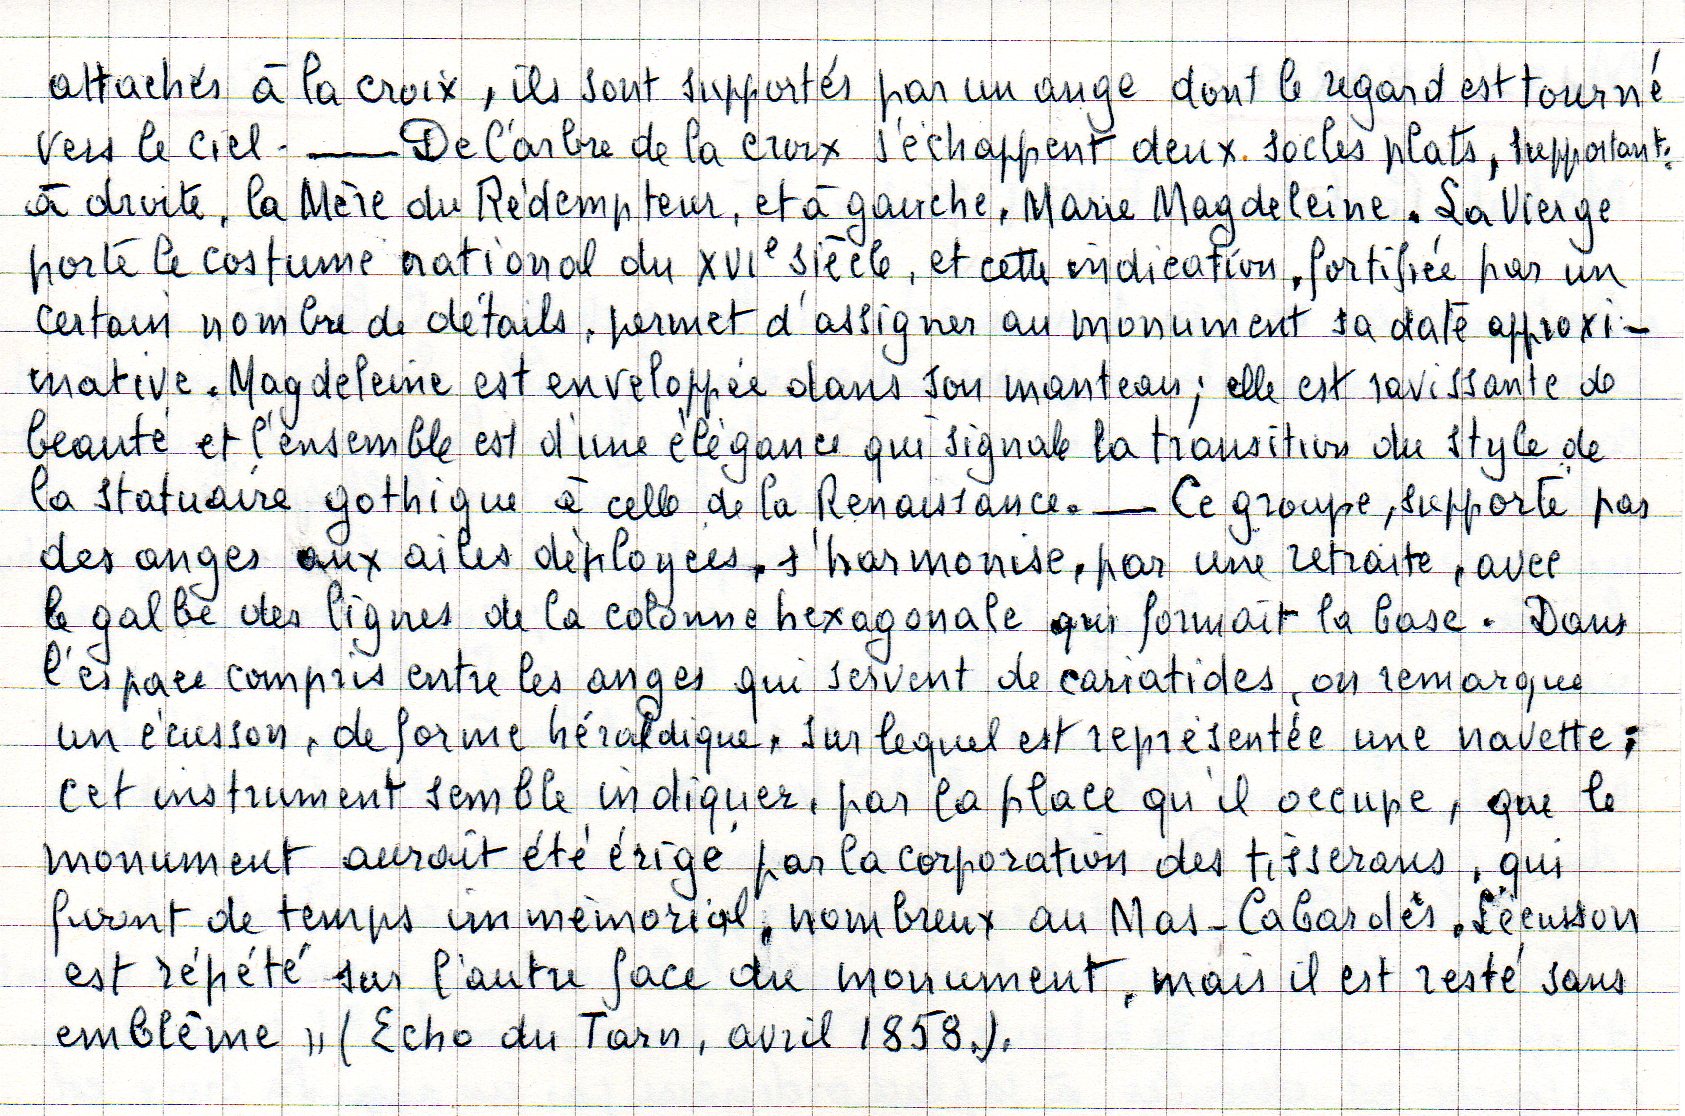 attachés à la croix, ils sont supportés par un ange dont le regard est tourné
vers le ciel. — De l'arbre de la croix s'échappent deux socles plats, supportant:
à droite, la Mère du Rédempteur, et à gauche, Marie Magdeleine. La Vierge
porte le costume national du XVIe siècle, et cette indication, fortifiée par un
certain nombre de détails, permet d'assigner au monument sa date approxi-
mative. Magdeleine est enveloppée dans son manteau; elle est ravissante de
beauté et l'ensemble est d'une élégance qui signale la transition du style de
la statuaire gothique à celle de la Renaissance. — Ce groupe, supporté par
des anges aux ailes déployées, s'harmonise, par une retraite, avec
le galbe des lignes de la colonne hexagonale qui formait la base. Dans
l'espace compris entre les anges qui servent de cariatides, on remarque
un écusson, de forme héraldique, sur lequel est représentée une navette;
cet instrument semble indiquer, par la place qu'il occupe, que le
monument aurait été érigé par la corporation des tisserans, qui
furent de temps immémorial, nombreux au Mas-Cabardès. L'écusson
est répété sur l'autre face du monument, mais il est resté sans
emblême » (Echo du Tarn, avril 1858.).